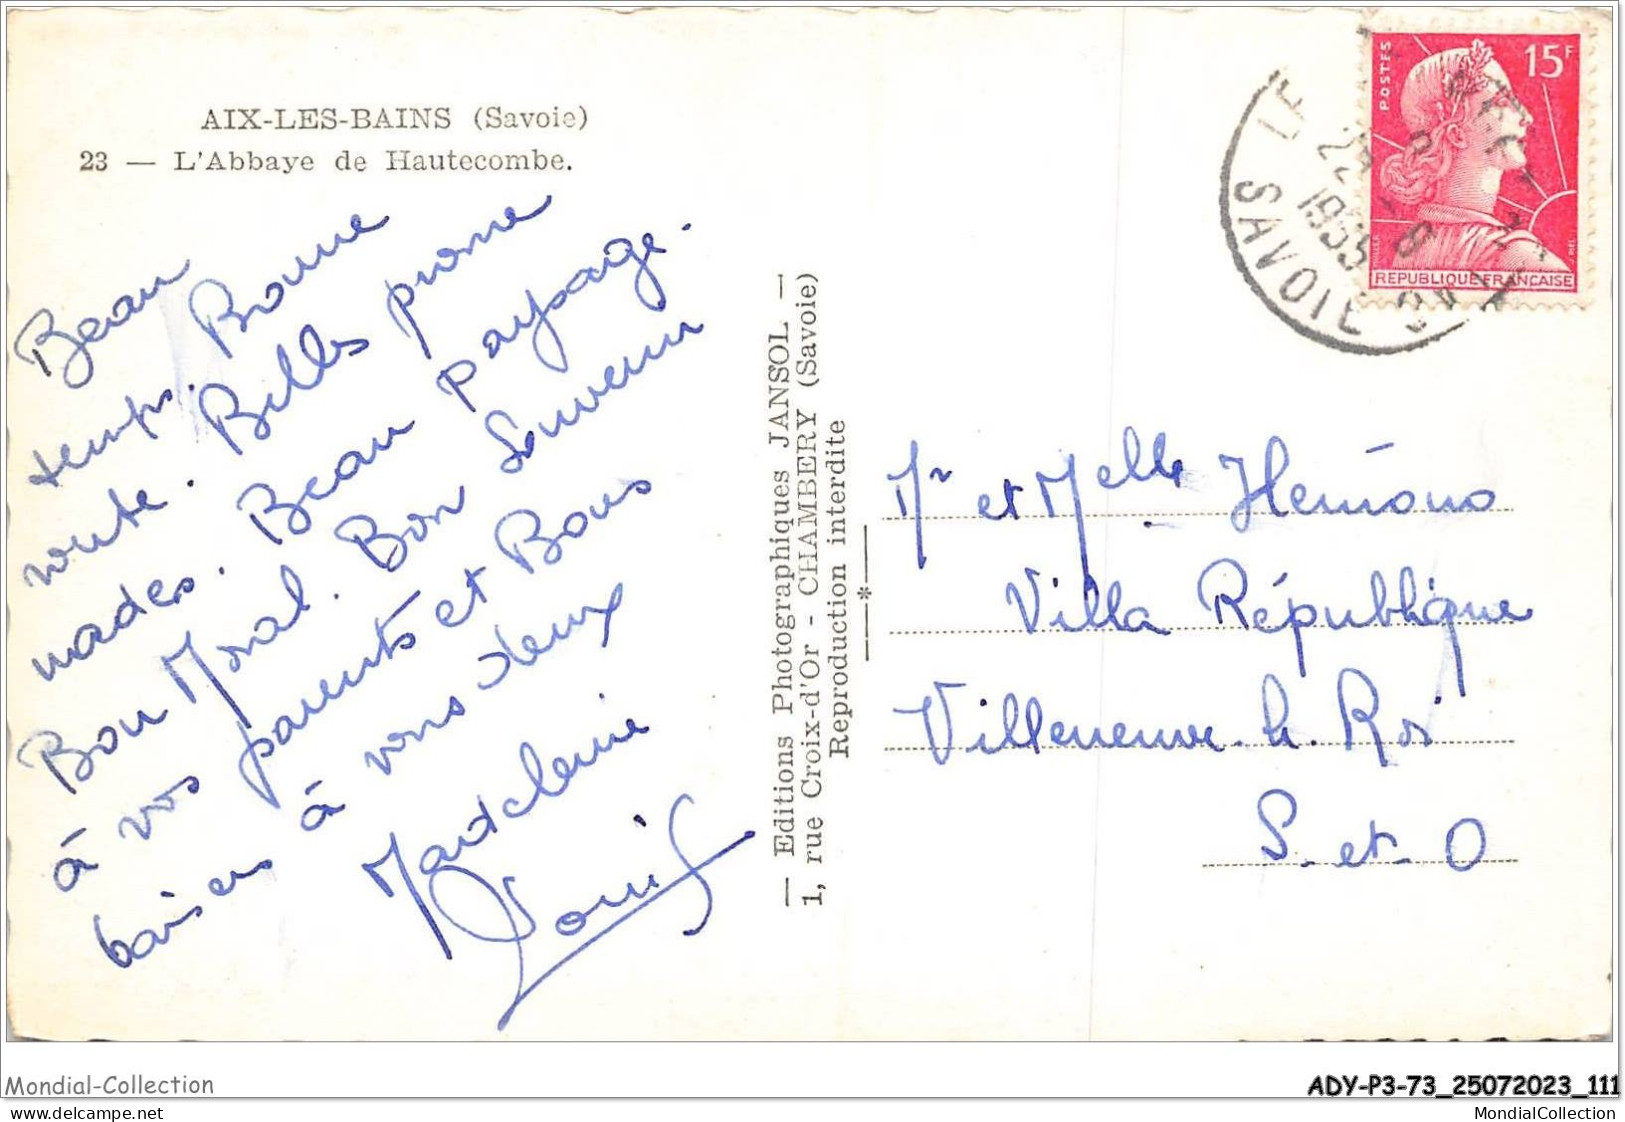 AIX-LES-BAINS (Savoie)
23 — L'Abbaye de Hautecombe.
Beau
temps. Bonne
route. Belles prome
nades. Beau paysage.
Bon Moral. Bon Souvenir
à vos parents et Bons
baisers à vous deux
Madeleine
Louis
— Editions Photographiques JANSOL —
1, rue Croix-d'Or - CHAMBERY (Savoie)
Reproduction interdite
POSTES
15F
REPUBLIQUE FRANÇAISE
1955
SAVOIE
Mr et Melle
Villa République
Villeneuve. le. Roi
S. et. O
Mondial-Collection
ADY-P3-73_25072023_111
www.delcampe.net
MondialCollection